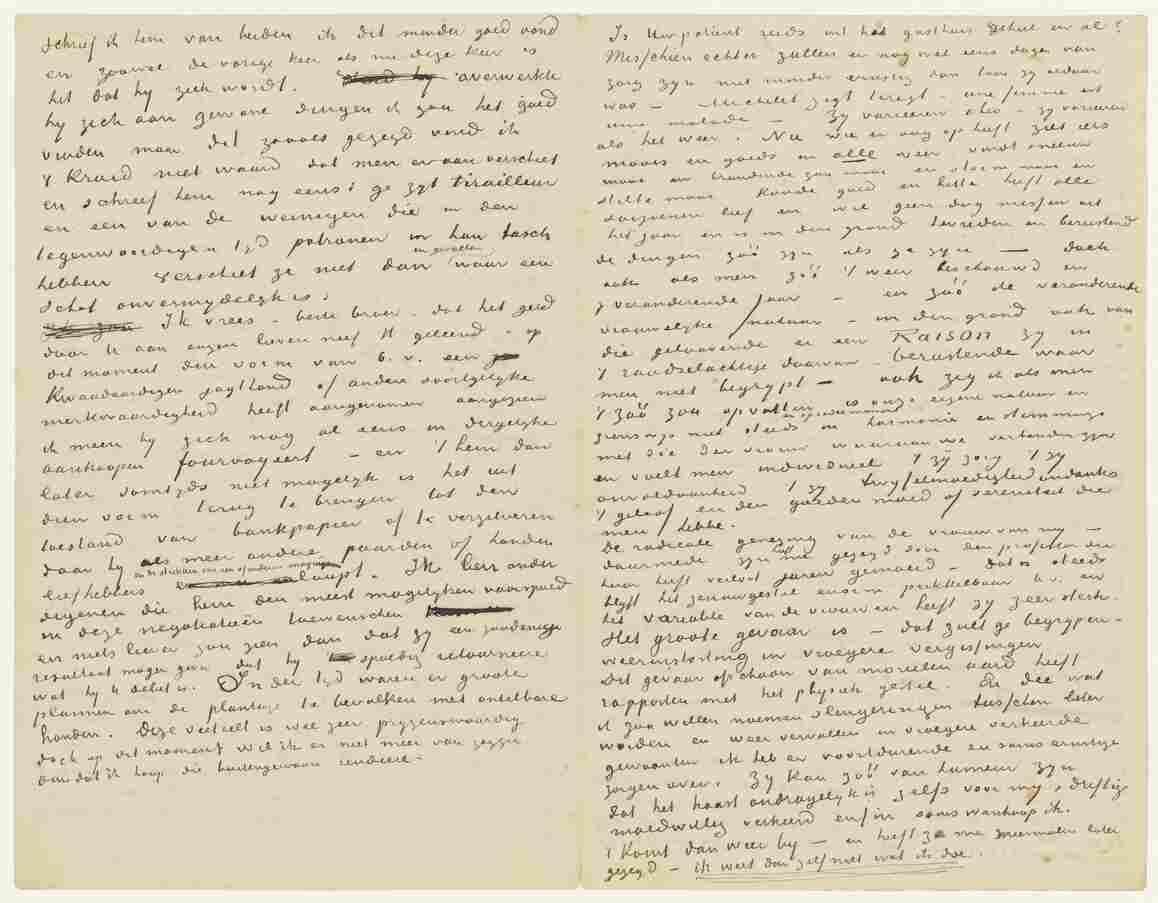 schreef ik hem van heiden ik dit minder goed vond
en zoowel de vorige keer als nu deze keer is
hit dat hy ziek wordt. averwerkte
hy zich aan gewone dingen ik zou het goed
vinden maar dit zooals gezegd vond ik
't kruid niet waard dat men er aan verschiet
en schreef hem nog eens: ge zyt tirailleur
en een van de weinigen die in den
tegenwoordigen tyd patronen in hun tasch
hebben verschiet ze niet dan waar een
schot onvermydelyk is.
Ik vrees – beste broer – dat het geld
door U aan onzen lieven neef H geleend – op
dit moment den vorm van b.v. een
kwaadaardigen jagthond of andere soortgelyke
merkwaardigheid heeft aangenomen aangezien
ik meen hy zich nog al eens in dergelyke
aankoopen fourvoyeert – en 't hem dan
later somtyds niet mogelyk is het uit
dien vorm terug te brengen tot den
toestand van bankpapier of te verzilveren
daar hy als meer andere paarden of honden
liefhebbers loopt. Ik ben onder
degenen die hem den meest mogelyken voorspoed
in deze negotiatiën toewenschen
en niets liever zou zien dan dat zy een zoodanig
resultaat mogen geven dat hy spoedig retourneere
wat hy U debet is. In der tyd waren er groote
plannen om de plantage te bevolken met ontelbare
honden. Deze variteit is wel zeer pryzenswaardig
doch op dit moment wil ik er niet meer van zeggen
dan dat ik hoop die buitengewoon rendeere.
Is Uw patient reeds uit het gasthuis
Misschien echter zullen er nog wel eens dagen van
zorg zyn niet minder ernstig dan toen zy aldaar
was – Michelet zegt teregt – une femme est
une malade – Zy varieeren Theo – zy varieeren
als het weer. Nu wie er oog op heeft ziet iets
moois en goeds in alle weer vindt sneeuw
mooi en brandende zon mooi en storm mooi en
stilte mooi koude goed en hitte heeft alle
saizoenen lief en wil geen dag missen uit
het jaar en is in den grond tevreden en berustend
de dingen zóó zyn als ze zyn – doch
ook als men zóó 't weer beschouwd en
't veranderende jaar – en zóó de veranderende
vrouwelyke natuur – in den grond ook van
die geloovende er een RAISON zy in
't raadselachtige daarvan – berustende waar
men niet begrypt – ook zeg ik als men
't zóó zou opvatten is onze eigene natuur en
zienswys niet steeds in harmonie en stemming
met die der vrouw waaraan we verbonden zyn
en voelt men individueel 't zy zorg 't zy
onvoldaanheid 't zy twyfelmoedigheid ondanks
't geloof en den goeden moed of sereniteit die
men hebbe.
De radicale genezing van de vrouw van my –
daarmede zyn gezegd door den professor die
haar heeft verlost jaren gemoeid – dat is steeds
blyft het zenuwgestel enorm prikkelbaar b.v. en
het variable van de vrouwen heeft zy zeer sterk.
Het groote gevaar is – dat zult ge begrypen –
weerinstorting in vroegere vergissingen
Dit gevaar ofschoon van moreelen aard heeft
rapporten met het physiek gestel. En dee wat
ik zou willen noemen slingeringen tusschen beter
worden en weer vervallen in vroegere verkeerde
gewoonten ik heb er voortdurende en soms ernstige
zorgen over. Zy kan zóó van humeur zyn
dat het haast ondragelyk is zelfs voor my, driftig
moedwillig verkeerd enfin soms wanhoop ik.
't Komt dan weer by – en heeft ze me meermalen later
gezegd – ik weet dan zelf niet wat ik doe.